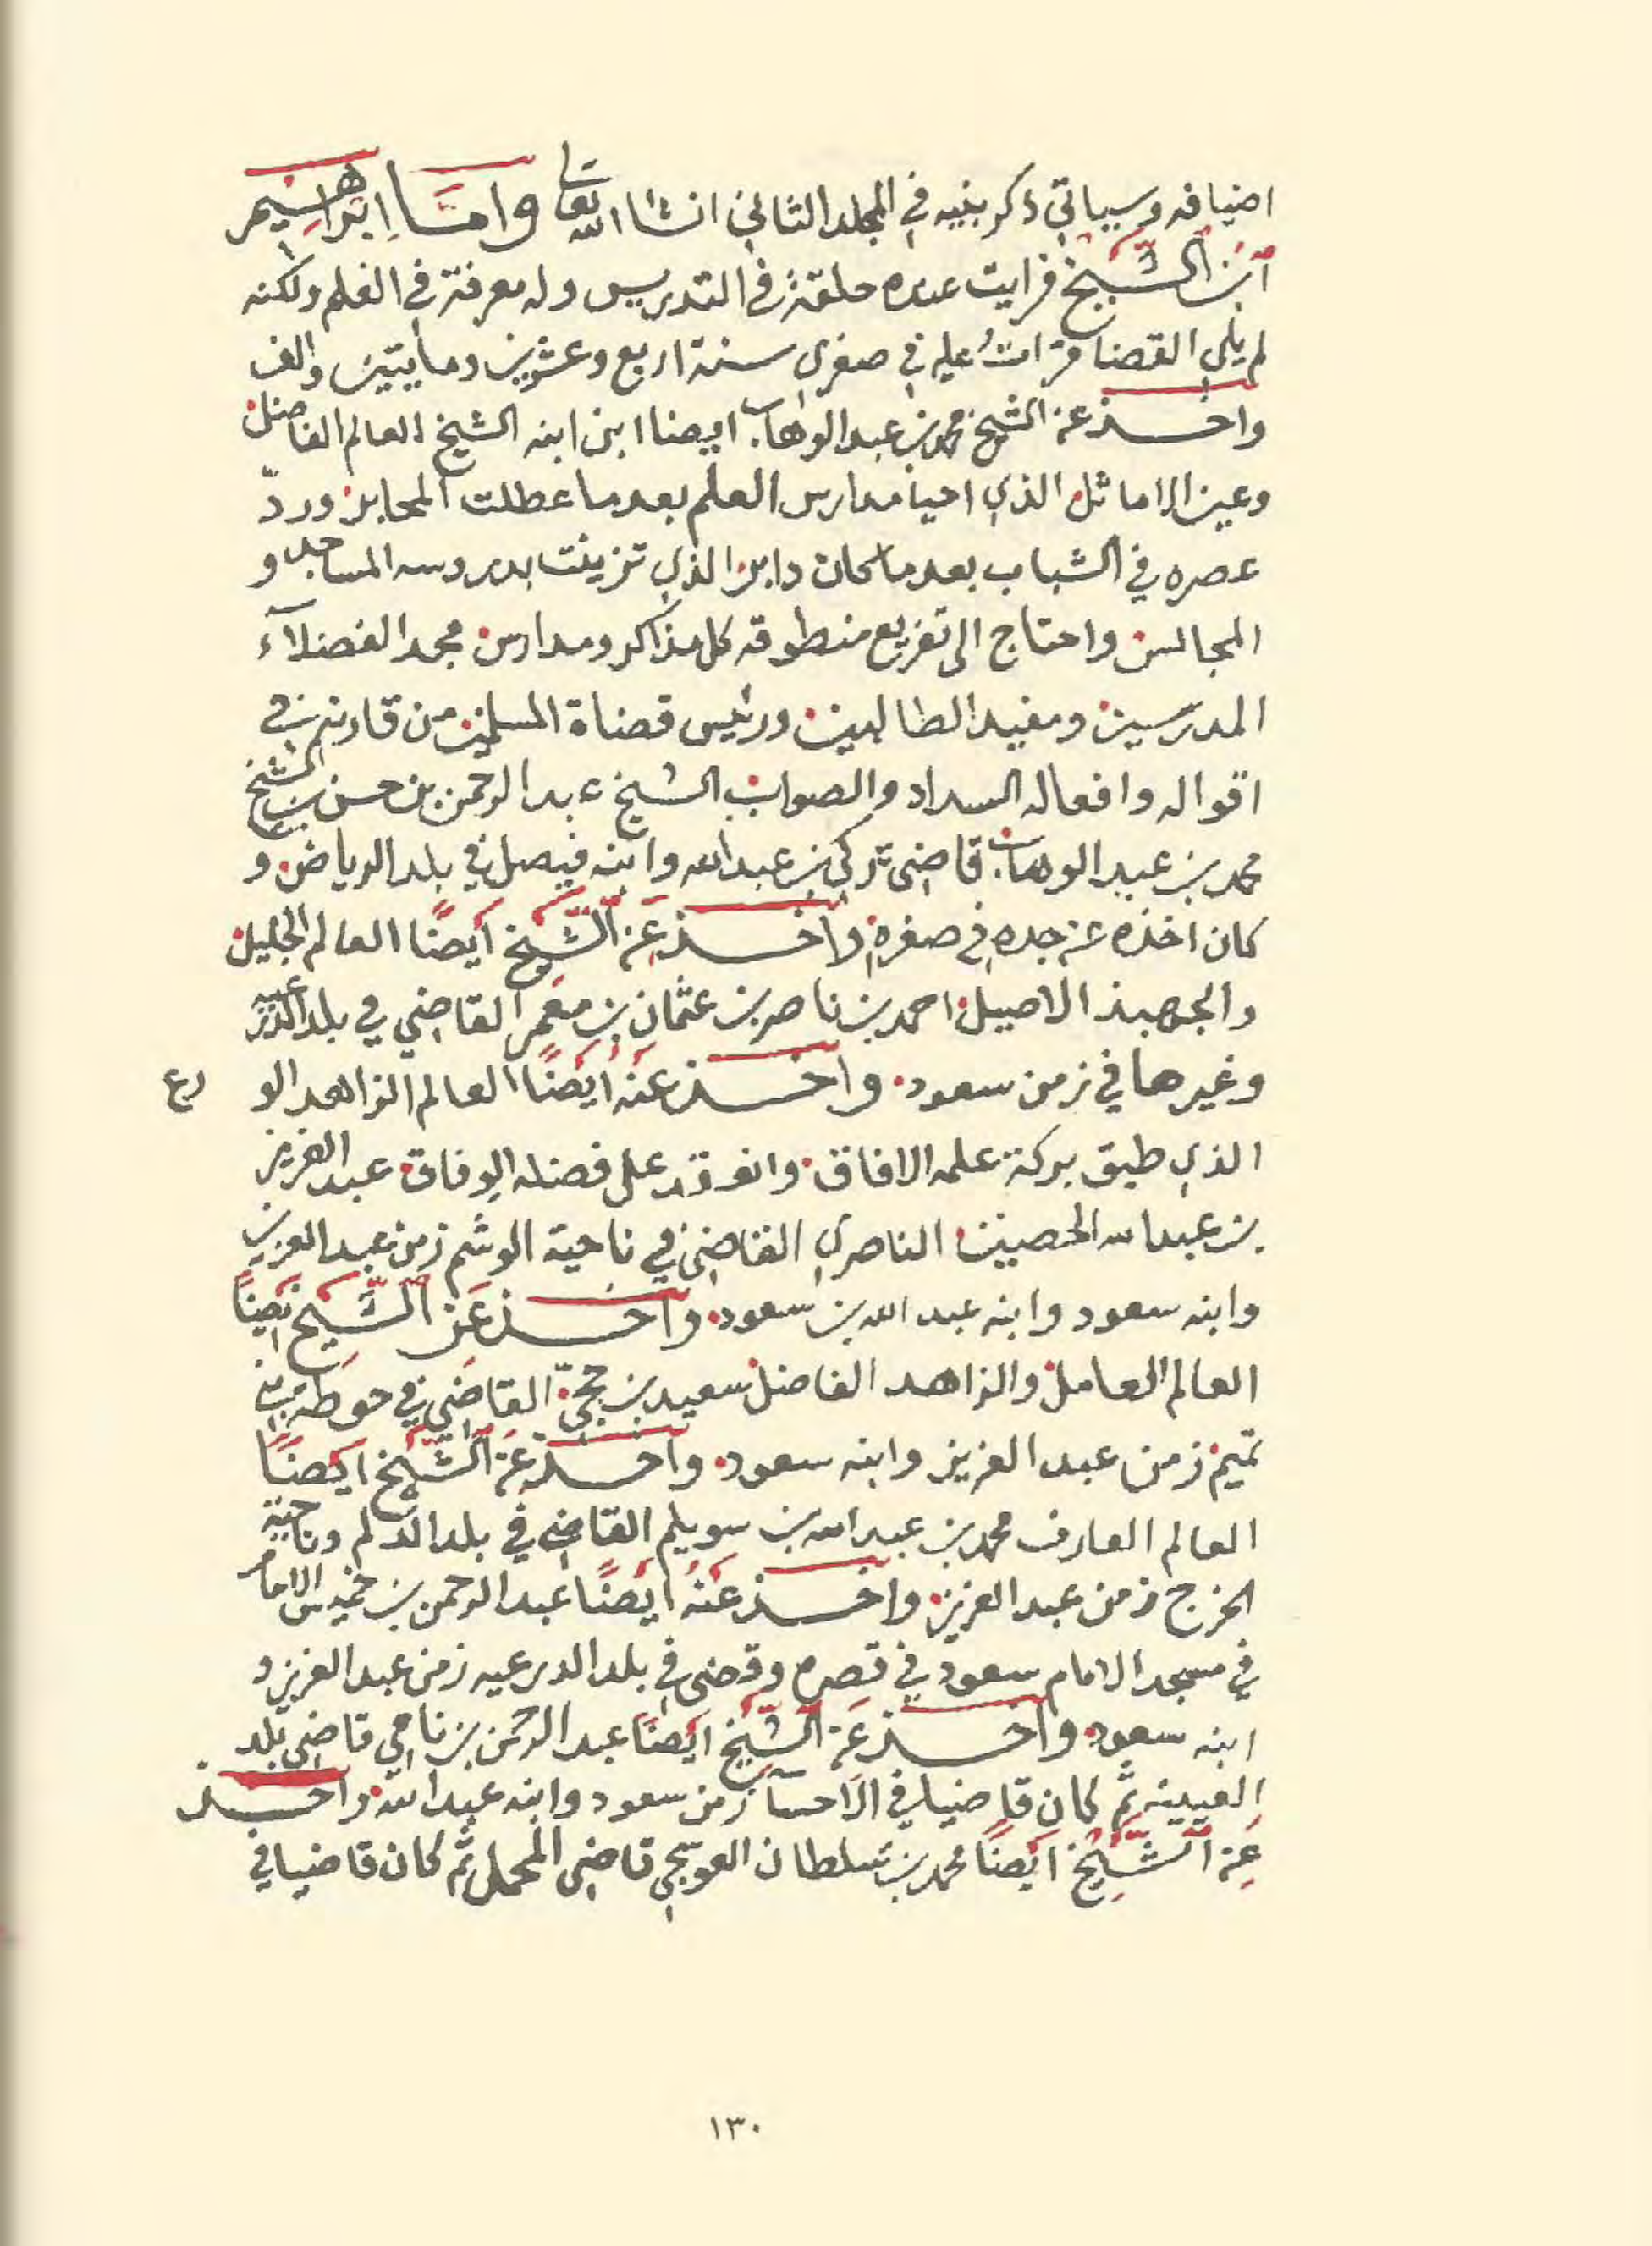 اضيافه وسياتي ذكر بنيه في المجلد الثاني انشا الله تعالى واما ابراهيم
ابن الشيخ فرايت عنده حلقة في التدريس وله معرفة في العلم ولكنه
لم يلي القضا قرات عليه في صغري سنة اربع وعشرين ومايتين والف
واخذ عن الشيخ محمد بن عبد الوهاب ايضا ابن ابنه الشيخ العالم الفاضل
وعين الاماثل الذي احيا مدارس العلم بعد ما عطلت المحابر وردّ
عصره في الشباب بعد ما كان دابر الذي تزينت بدروسه المساجد و
المجالس واحتاج الى تفريع منطوقه كل مذاكر ومدارس مجد الفضلآء
المدرسين ومفيد الطالبين ورئيس قضاة المسلمين من قارنه في
اقواله وافعاله السداد والصواب الشيخ عبد الرحمن بن حسن بن الشيخ
محمد بن عبد الوهاب قاضي تركي بن عبد الله وابنه فيصل في بلد الرياض و
كان اخذه عن جده في صغره واخذ عن الشيخ ايضًا العالم الجليل
والجهبذ الاصيل احمد بن ناصر بن عثمان بن معمر القاضي في بلد الدرعيه
وغيرها في زمن سعود واخذ عنه ايضًا العالم الزاهد الو رع
الذي طبق بركة علمه الافاق وانعقد على فضله الوفاق عبد العزيز
بن عبد الله الحصين الناصري القاضي في ناحية الوشم زمن عبد العزيز
وابنه سعود وابنه عبد الله بن سعود واخذ عن الشيخ ايضًا
العالم العامل والزاهد الفاضل سعيد بن حجّي القاضي في حوطة بني
تميم زمن عبد العزيز وابنه سعود واخذ عن الشيخ ايضًا
العالم العارف محمد بن عبد الله بن سويلم القاضي في بلد الدلم وناحية
الخرج زمن عبد العزيز واخذ عنه ايضًا عبد الرحمن بن خميس الامام
في مسجد الامام سعود في قصره وقضى في بلد الدرعيه زمن عبد العزيز و
ابنه سعود واخذ عن الشيخ ايضًا عبد الرحمن بن نامي قاضي بلد
العيينه ثم كان قاضيا في الاحسآ زمن سعود وابنه عبد الله واخذ
عن الشيخ ايضًا محمد بن سلطان العوسجي قاضي المحمل ثم كان قاضيا في
١٣٠